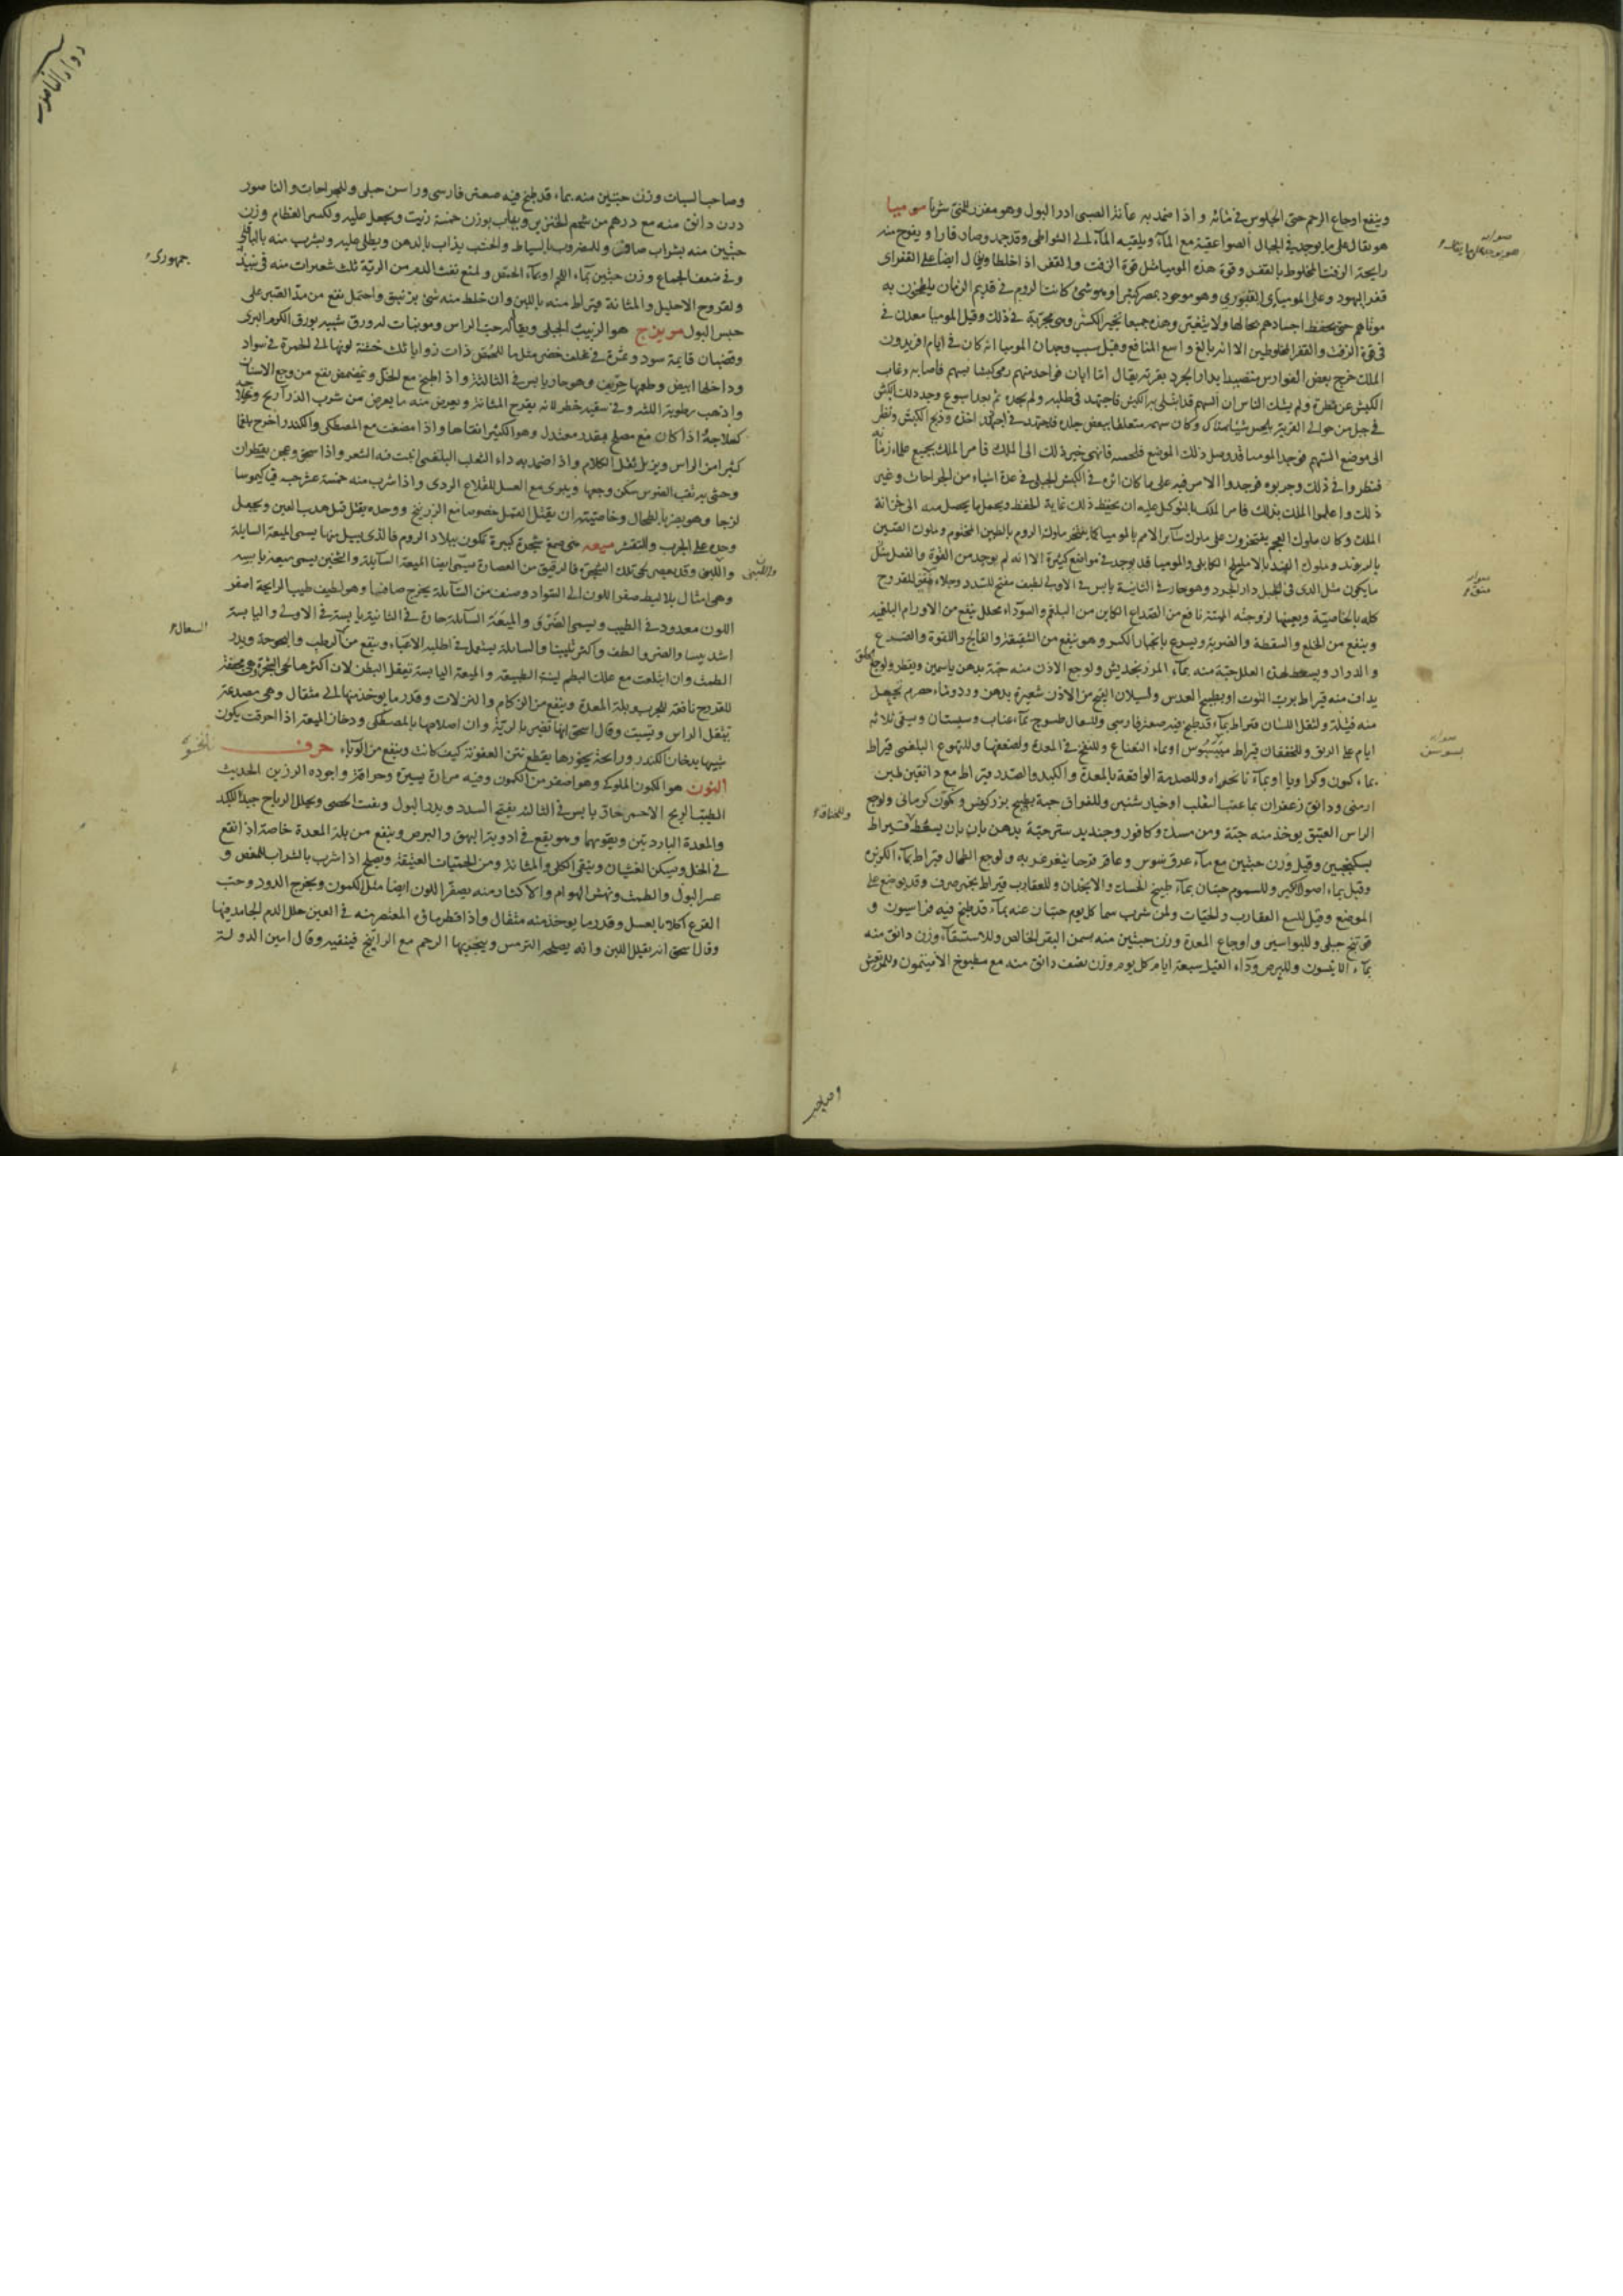 وينفع اوجاع الرحم حتى الجلوس في مائه واذا ضمد به عانة الصبي ادر البول وهو مغزر للمنى شربا موميا
هو يقال على ما يوجد في الجبال الصواعقية مع الماء ويلقيه الماء الى الشواطى وقد جمد وصار قارا ويفوح منه
رايحة الزفت المخلوط بالقفر وقوة هذه الموميا مثل قوة الزفت والقفر اذا اخلطا ويقال ايضا على القفراى
قفر اليهود وعلى الموميائى القبورى وهو موجود بمصر كثيرا وهو شئ كانت الروم في قديم الزمان يلطخون به
موتاهم حتى يحفظ اجسادهم بحالها ولا يتغير وهذه جميعا تجبر الكسر وهى مجربة في ذلك وقيل الموميا معدن في
قوة الزفت والقفر المخلوطين الا انه بالغ واسع المنافع وقيل سبب وجدان الموميا انه كان في ايام افريدون
الملك خرج بعض الفوارس متصيدا بدارابجرد بقرية يقال لها ابان فواحد منهم رمى كبشا بسهم فاصابه وغاب
الكبش عن نظره ولم يشك الناس ان السهم قد ابتلى به الكبش فاجتهد في طلبه ولم يجده ثم بعد اسبوع وجد ذلك الكبش
في جبل من حوالى القرية يلحس شيئا هناك وكان سهمه متعلقا ببعض جلده فاجتهد في اخذه وذبح الكبش ونظر
الى موضع السهم فوجد الموميا قد وصل ذلك الموضع فلحسه فانهى خبر ذلك الى الملك فامر الملك بجميع علماء زمانه
فنظروا في ذلك وجربوه فوجدوا الامر فيه على ما كان اثره في الكبش الجبلى في عدة اشياء من الجراحات وغير
ذلك واعلموا الملك بذلك فامر الملك بالتوكل عليه ان يحفظ ذلك غاية الحفظ ويحمل ما يحصل منه الى خزانة
الملك وكان ملوك العجم يفتخرون على ملوك سائر الامم بالموميا كما يفتخر ملوك الروم بالطين المختوم وملوك الصين
بالريوند وملوك الهند بالاهليلج الكابلى والموميا قد يوجد في مواضع كثيرة الا انه لم يوجد من القوة والفعل مثل
ما يكون مثل الذى في الجبل دارابجرد وهو حار في الثانية يابس في الاولى لطيف مفتح للسدد وجلاء للقروح
كله بالخاصية ويعينها لزوجته الهشة نافع من الصداع الكاين من البلغم والسوداء محلل ينفع من الاورام البلغمية
وينفع من الخلع والسقطة والضربة ويسرع بانجبار الكسر وهو ينفع من الشقيقة والفالج واللقوة والصرع
والدوار ويسعط لهذه العلل حبة منه بماء المرزنجوش ولوجع الاذن منه حبة بدهن ياسمين ويقطر ولوجع الحلق
يداف منه قيراط برب التوت او بطبيخ العدس ولسيلان القيح من الاذن شعيرة بدهن ورد وماء حصرم تجعل
منه فتيلة ولثقل اللسان قيراط بماء قد طبخ فيه صعتر فارسى وللسعال طسوج بماء عناب وسبستان ويسقى ثلاثة
ايام على الريق وللخفقان قيراط او بماء النعناع وللنفخ في المعدة ولضعفها وللتهوع البلغمى قيراط
بماء كمون وكراويا او بماء نانخواه وللصدمة الواقعة بالمعدة والكبد والصدر قيراط مع دانقين طين
ارمنى ودانق زعفران بماء عنب الثعلب او خيار شنبر وللفواق حبة بطبيخ بزر كرفس وكمون كرمانى ولوجع
الراس العتيق يوخذ منه حبة ومن مسك وكافور وجندبيدستر حبة بدهن بان يسعط قيراط
بسكنجبين وقيل وزن حبتين مع ماء عرق سوس وعاقر قرحا يتغرغر به ولوجع الطحال قيراط بماء الكزبرة
وقيل بماء اصول الكبر وللسموم حبتان بماء طبيخ الحسك والانجدان وللعقارب قيراط بخمر صرف وقد يوضع على
الموضع وقيل للسع العقارب والحيات ولمن شرب سما كل يوم حبتان منه بماء قد طبخ فيه فراسيون و
فوتنج جبلى وللبواسير واوجاع المعدة وزن حبتين منه بسمن البقر الخالص وللاستسقاء وزن دانق منه
بماء الانيسون وللبرص وداء الفيل سبعة ايام كل يوم وزن نصف دانق منه مع مطبوخ الافتيمون وللمرتعش
وللخناق
وصاحب
وصاحب السبات وزن حبتين منه بماء قد طبخ فيه صعتر فارسى وراسن جبلى وللجراحات والناصور
وزن دانق منه مع درهم من شحم الخنزير ويذاب بوزن خمسة زيت ويجعل عليه ولكسر العظام وزن
حبتين منه بشراب صافى وللمضروب بالسياط والخشب يذاب بالدهن ويطلى عليه ويشرب منه بالباقلى
وفي ضعف الجماع وزن حبتين بماء اللحم او بماء الحمص ولمنع نفث الدم من الرية ثلث شعيرات منه في نبيذ
جمهورى
ولقروح الاحليل والمثانة قيراط منه باللبن وان خلط منه شئ بزنبق واحتمل نفع من مد القصير على
حبس البول مويزج هو الزبيب الجبلى ويقال له حب الراس وهو نبات له ورق شبيه بورق الكرم البرى
وقضبان قايمة سود وثمرة في غلف خضر مثل ما للحمص ذات زوايا ثلث خشنة لونها الى الحمرة في سواد
وداخلها ابيض وطعمها حريف وهو حار يابس في الثالثة واذا طبخ مع الخل وتمضمض نفع من وجع الاسنان
واذهب رطوبة اللثة وفي سقيه خطر لانه يقرح المثانة ويعرض منه ما يعرض من شرب الذراريح وعلاجه
كعلاجه اذا كان مع مصلح بقدر معتدل وهو الكثيرا نقاها واذا مضغت مع المصطكى والكندر اخرج بلغما
كثيرا من الراس ويزيل ثقل الكلام واذا ضمد به داء الثعلب البلغمى انبت فيه الشعر واذا سحق وعجن بقطران
وحشى به نقب الضرس سكن وجعها ويبرى مع العسل للقلاع الردى واذا شرب منه خمسة عشر حبة قيأ كيموسا
لزجا وهو يضر بالطحال وخاصيته ان يقتل القمل خصوصا مع الزرنيخ ووحده يقتل قمل هدب العين ويجعل
وحده على الجرب والتقشر ميعه هى صمغ شجرة كبيرة تكون ببلاد الروم فالذى يسيل منها يسمى الميعة السايلة
واللبنى وقد يعصر لحى تلك الشجرة فالرقيق من العصارة يسمى ايضا الميعة السائلة والثخين يسمى ميعة يابسة
وهى امثال بلاليط صفر اللون الى السواد وصنف من السائلة يخرج صافيا وهو لطيف طيب الرايحة اصفر
اللون معدود في الطيب ويسمى الضرى والميعة السائلة حارة في الثانية يابسة في الاولى واليابسة
اشد يبسا والضرى الطف واكثر تليينا والسايلة يستعمل في اطلية الاعياء وينفع من الرطب والبحوحة ويدر
السعال
الطمث وان ابتلعت مع علك البطم لينت الطبيعة والميعة اليابسة تعقل البطن لان اكثرها لحى الشجرة وهى مجففة
للقروح نافعة للجرب وبلة المعدة وينفع من الزكام والنزلات وقدر ما يوخذ منها الى مثقال وهى مصدعة
تثقل الراس وتسبت وقال اسحق انها تضر بالرية وان اصلاحها بالمصطكى ودخان الميعة اذا احرقت يكون
شبيها بدخان الكندر ورايحة بخورها يقطع نتن العفونة كيف كانت وينفع من الوباء حرف
النون هو الكمون الملوكى وهو اصغر من الكمون وفيه مرارة يسيرة وحرافة واجوده الرزين الحديث
نانخوه
الطيب الريح الاحمر حار يابس في الثالثة يفتح السدد ويدر البول ويفتت الحصى ويحلل الرياح جيد للكبد
والمعدة الباردتين ويقويهما وهو يقع في ادوية البهق والبرص وينفع من بلة المعدة خاصة اذا نقع
في الخل ويسكن الغثيان وينقى الكلى والمثانة ومن الحميات العتيقة ويصلح اذا شرب بالشراب للمغص و
عسر البول والطمث ونهش الهوام والاكثار منه يصفر اللون ايضا مثل الكمون ويخرج الدود وحب
القرع اكلا بالعسل وقدر ما يوخذ منه مثقال واذا قطر ماؤه المعتصر منه في العين حلل الدم الجامد فيها
وقال اسحق انه يقلل اللبن وانه يصلحه الترمس ويبخر بها الرحم مع الراتينج فينقيه وقال امين الدولة